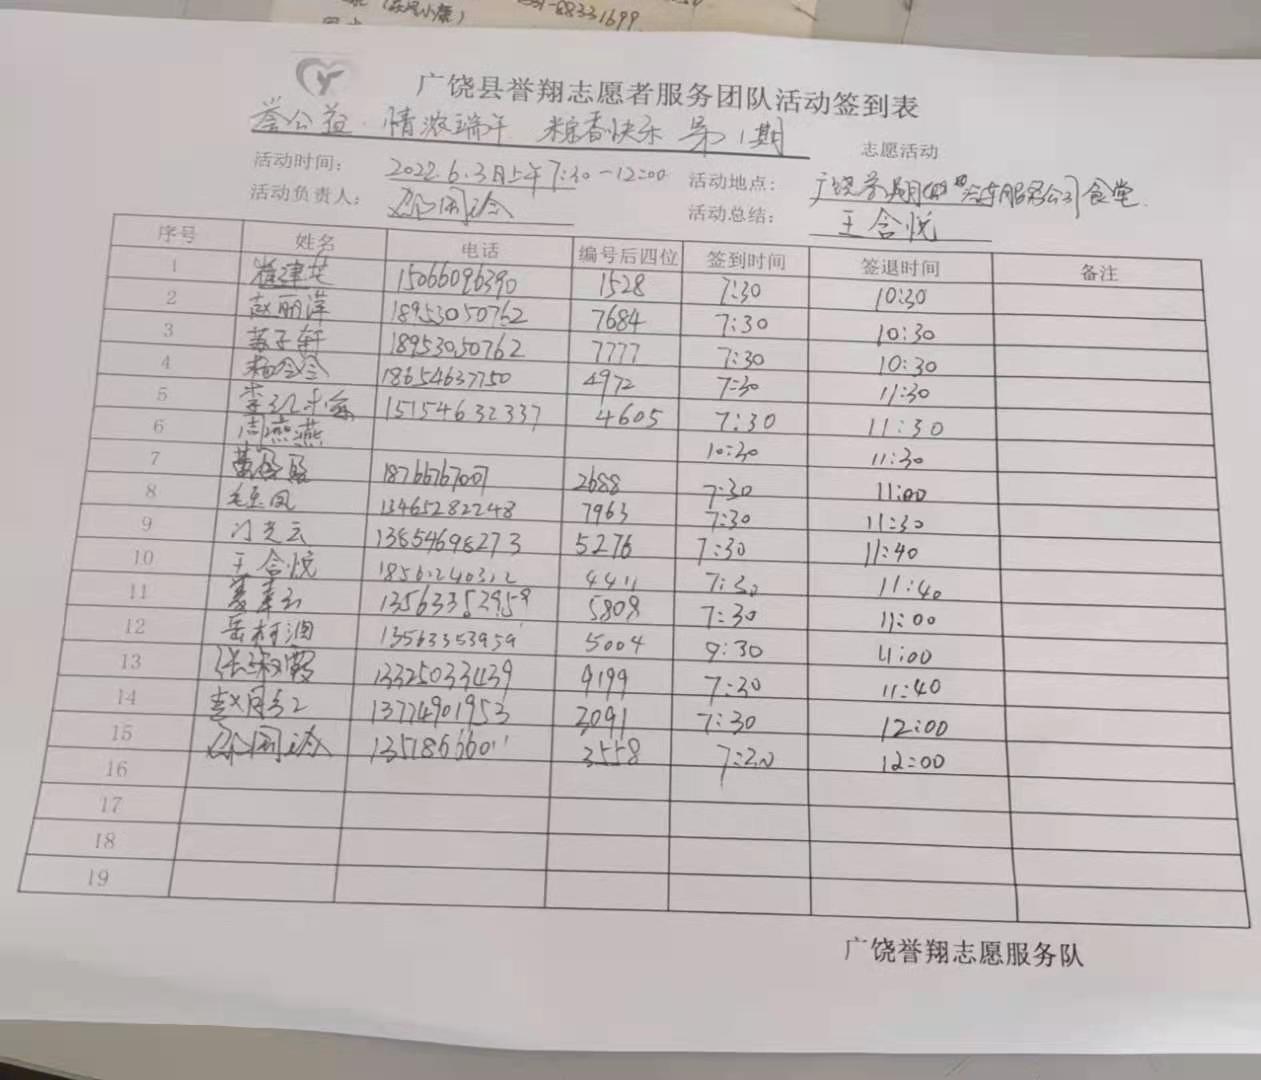 (东风小康)
88331699
广饶县誉翔志愿者服务团队活动签到表
誉公益·情浓端午 粽香快乐 第1期 志愿活动
活动时间: 2022.6.3日上午7:30-12:00 活动地点: 广饶誉翔 食堂
活动负责人: 活动总结: 王合悦
序号 姓名 电话 编号后四位 签到时间 签退时间 备注
1 15066096390 1528 7:30 10:30
2 赵丽萍 18953050762 7684 7:30 10:30
3 苏子轩 18953050762 7777 7:30 10:30
4 18654637750 4972 7:30 11:30
5 15154632337 4605 7:30 11:30
6 周燕燕 10:30 11:30
7 18766767007 2688 7:30 11:00
8 毛玉凤 13465282248 7963 7:30 11:30
9 门光云 13854698273 5276 7:30 11:40
10 王合悦 18561240312 4411 7:30 11:40
11 5808 7:30 11:00
12 岳村润 13563353959 5004 9:30 11:00
13 张淑霞 13325033439 9199 7:30 11:40
14 赵月红 13774901953 3091 7:30 12:00
15 3558 7:20 12:00
16
17
18
19
广饶誉翔志愿服务队